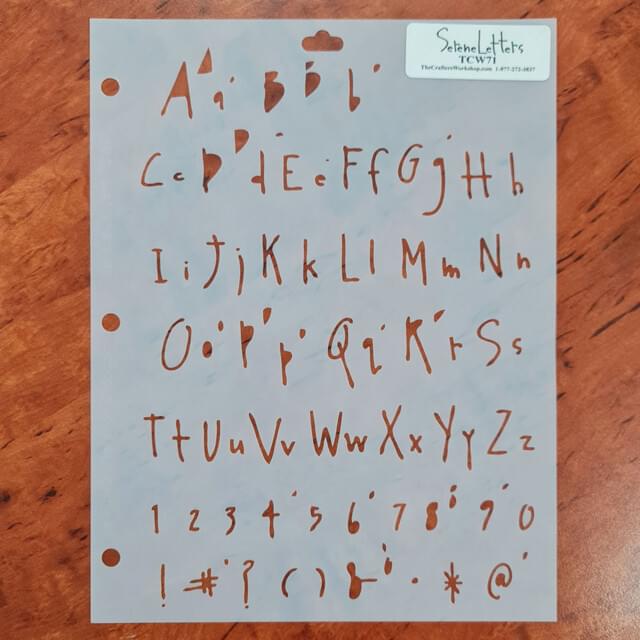 SereneLetters
TCW71
TheCraftersWorkshop.com 1-877-272-3837
A a B b
C c D d E e F f G g H h
I i J j K k L l M m N n
O o P p Q q R r S s
T t U u V v W w X x Y y Z z
1 2 3 4 5 6 7 8 9 0
! # ? ( ) & . * @